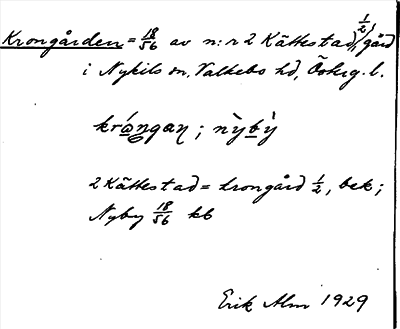 Krongården = 18/56 av n:r 2 Kättestad, 1/2 gård
i Nykils sn, Valkebo hd, Östergl.
nỳbỳ
2 Kättestad = krongård 1/2, bek;
Nyby 18/56 kb
Erik Alm 1929